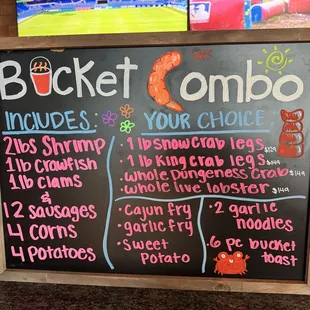 Bucket Combo
INCLUDES:
2lbs Shrimp
1lb Crawfish
1lb Clams
&
12 Sausages
4 Corns
4 Potatoes
YOUR CHOICE:
1 lb snow crab legs $129
1 lb King crab legs $149
whole Dungeness Crab $149
whole live lobster $149
• Cajun fry
• garlic fry
• Sweet
Potato
• 2 garlic
noodles
• 6 pc bucket
toast